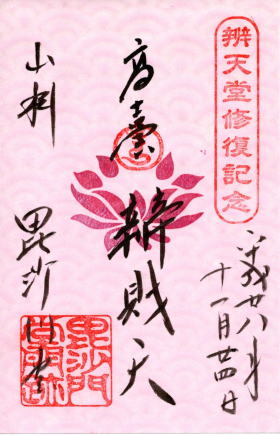 辨天堂修復記念
平成廿八年
十一月廿四日
高臺
辨財天
山科
毘沙門堂
毘沙門
堂門跡